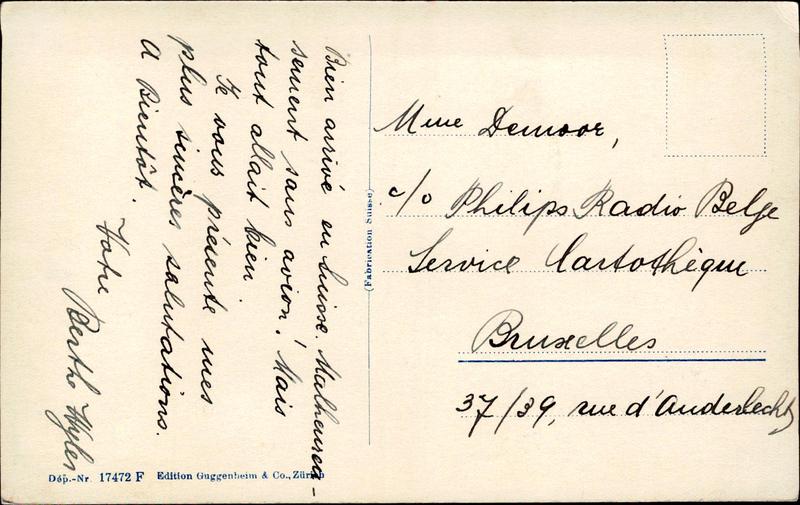 Bien arrivé en Suisse. Malheureu-
sement sans avion! Mais
tout allait bien.
Je vous présente mes
plus sincères salutations.
A Bientôt.
Votre
Berth Wyler
Mme Demoor,
c/o Philips Radio Belge
Service Cartothèque
Bruxelles
37/39, rue d'Anderlecht
(Fabrication Suisse)
Dép.-Nr. 17472 F Edition Guggenheim & Co., Zürich